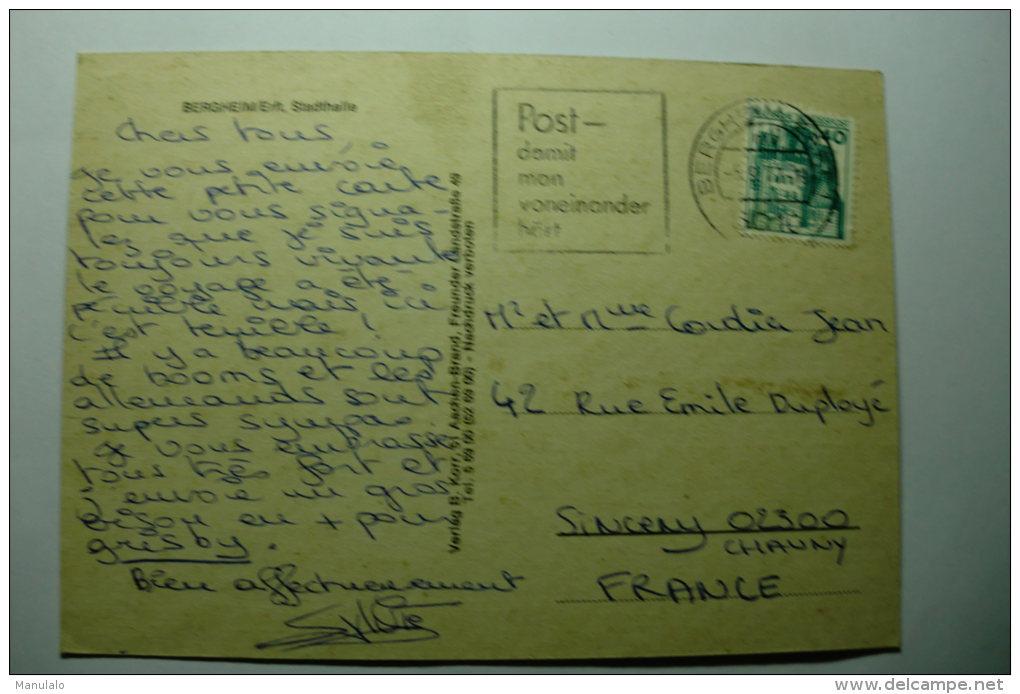 BERGHEIM/Erft, Stadthalle
Chers tous,
Je vous envoie
cette petite carte
pour vous signa-
ler que je suis
toujours vivante
le voyage a été
pénible mais ici
c'est terrible !
Il y a beaucoup
de booms et les
allemands sont
supers sympas
Je vous embrasse
tous très fort et
j'envoie un gros
bisou en + pour
grisby.
Bien affectueusement
Verlag B. Korr, 51 Aachen-Brand, Freunder Landstraße 49
Tel. - Nachdruck verboten
Post-
damit
man
voneinander
hört
BERGH
Mr et Mme Cordia Jean
42 Rue Emile Duployé
Sinceny 02300
CHAUNY
FRANCE
Manulalo
www.delcampe.net